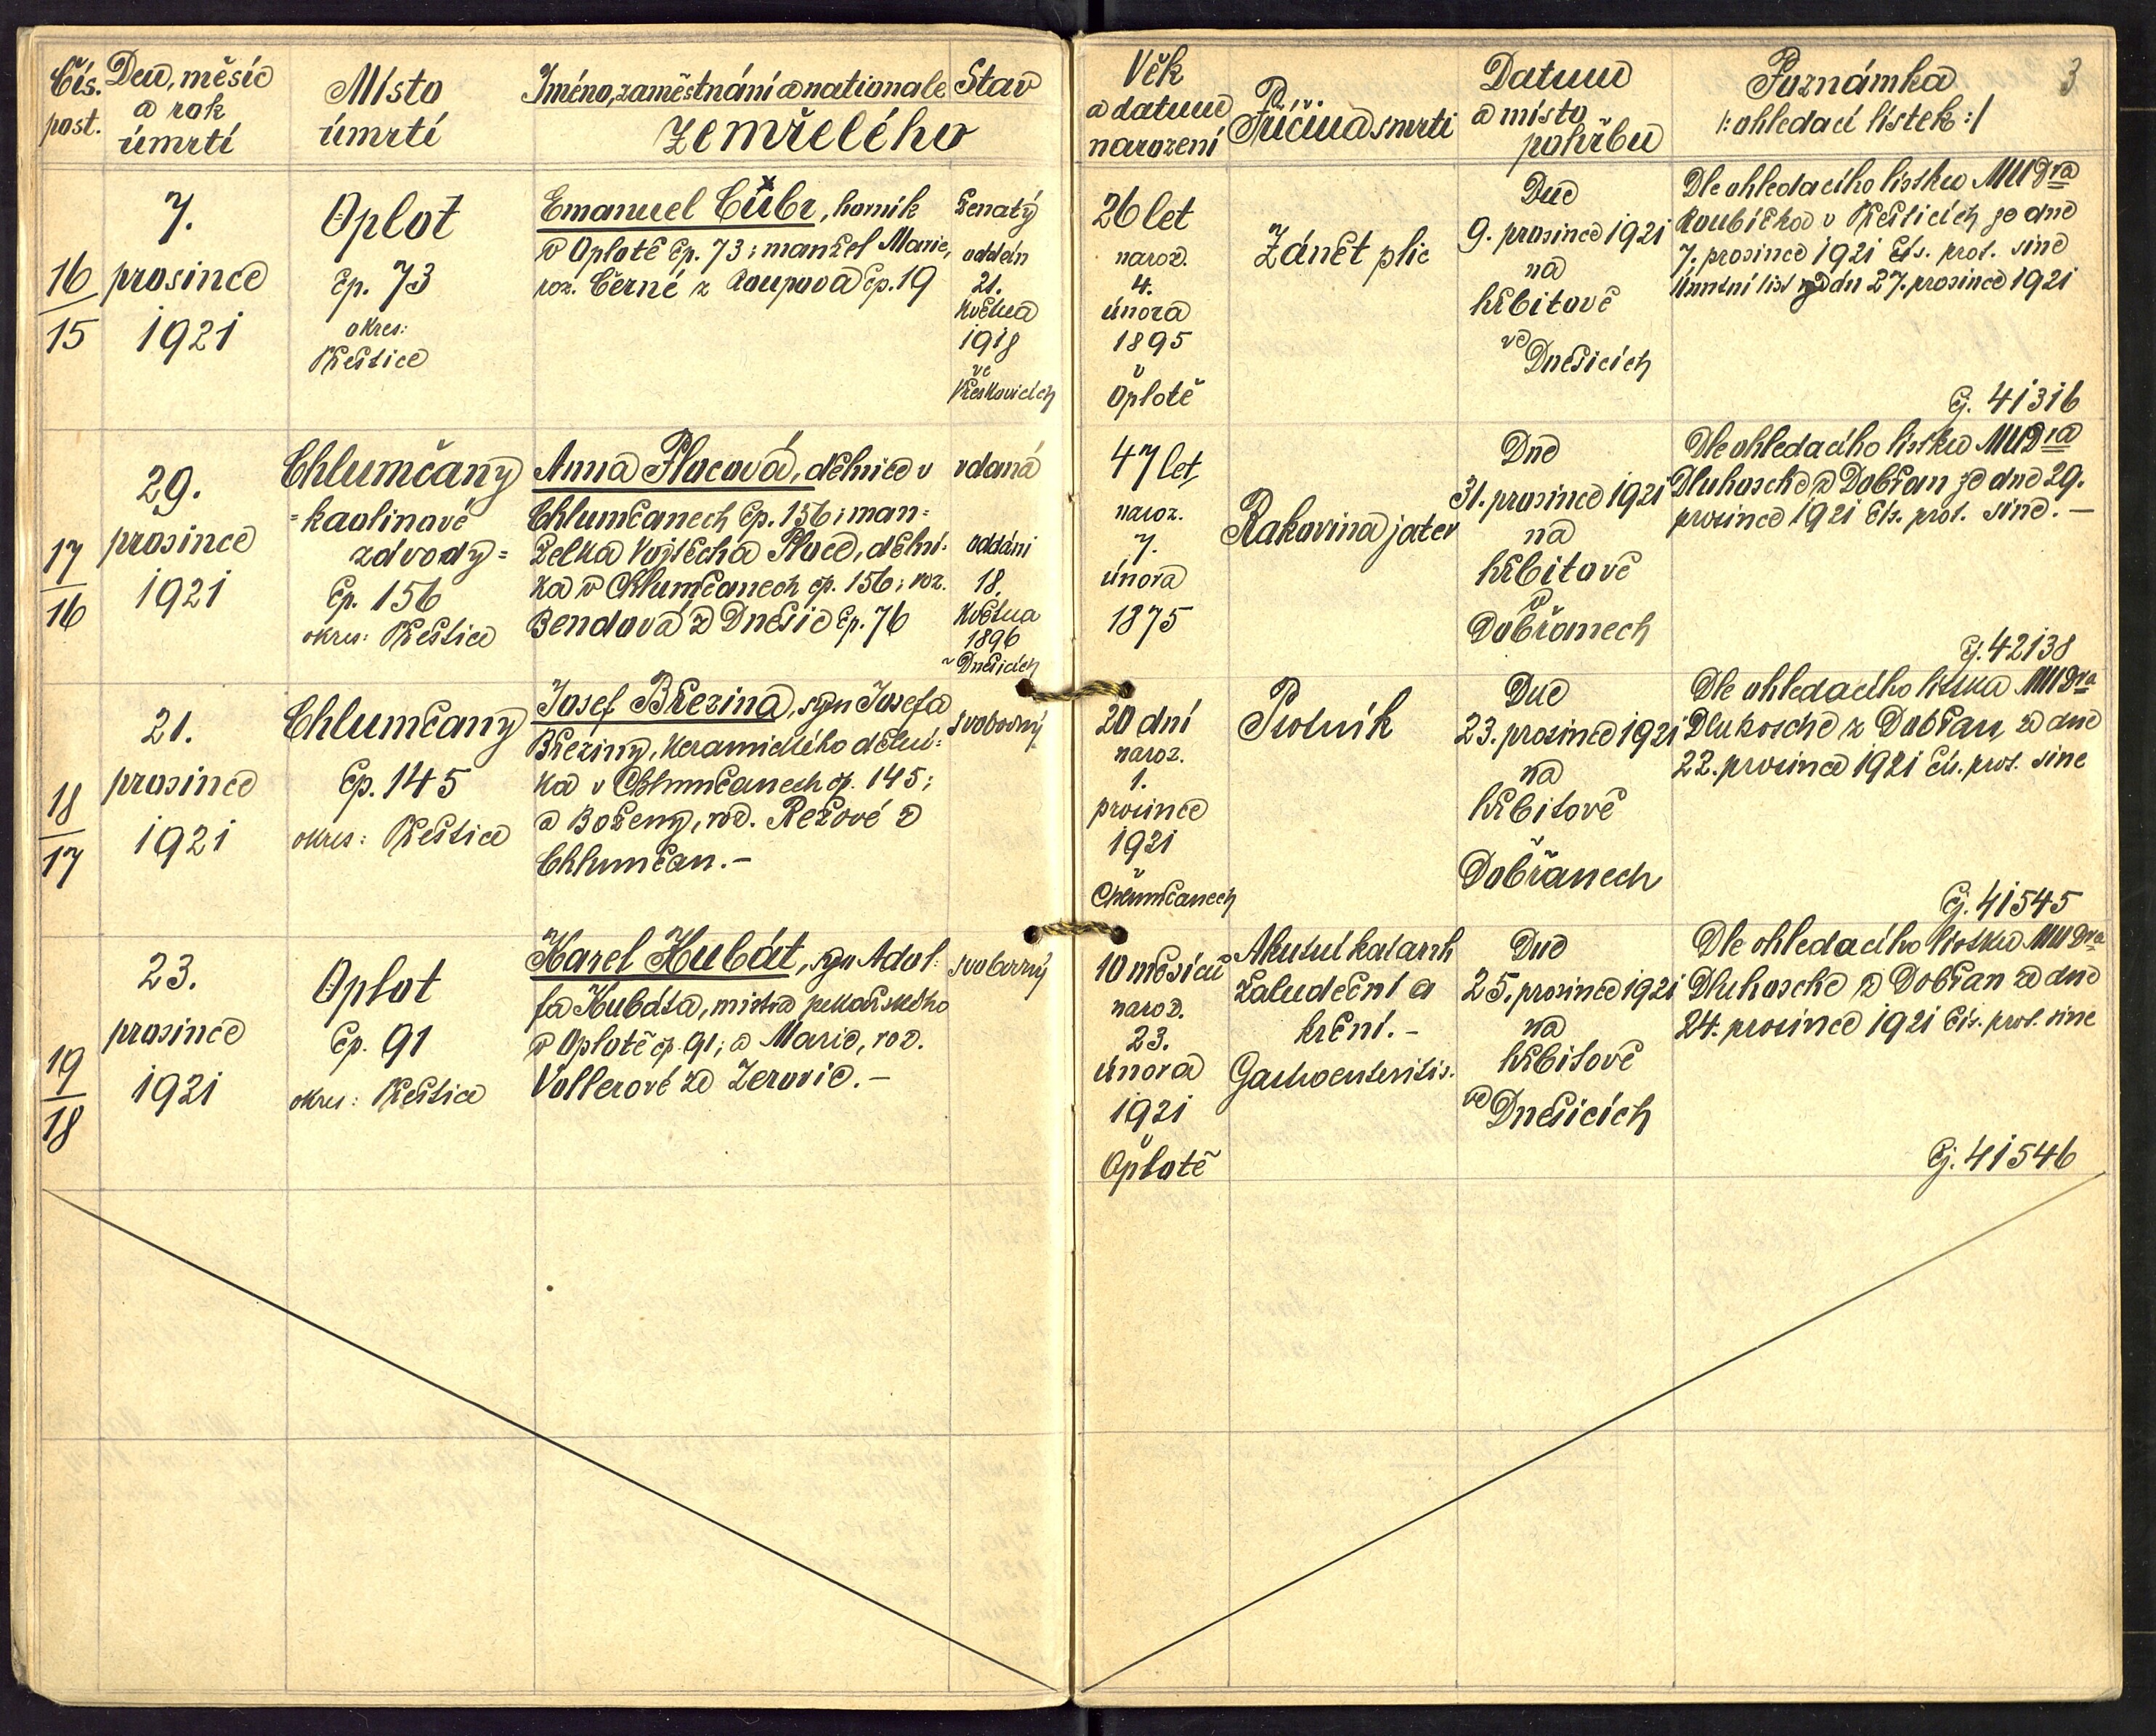 Čís.
post.
Den, měsíc
a rok
úmrtí
Místo
úmrtí
Jméno, zaměstnání a nationale
zemřelého
Stav
Věk
a datum
narození
Příčina smrti
Datum
a místo
pohřbu
Poznámka
/: ohledací lístek :/
3
16
15
7.
prosince
1921
Oplot
čp. 73
okres:
Přeštice
Emanuel Cübr, horník
v Oplotě čp. 73; manžel Marie,
roz. Černé z Roupova čp. 19
ženatý
oddán
21.
května
1918
ve
Vřeskovicích
26 let
naroz.
4.
února
1895
v
Oplotě
Zánět plic
Dne
9. prosince 1921
na
hřbitově
ve
Dnešicích
Dle ohledacího lístku MUDra
Koubíčka v Přešticích ze dne
7. prosince 1921 čís. prot. sine
Úmrtní list dn 27. prosince 1921
Čj. 41316
17
16
29.
prosince
1921
Chlumčany
=kaolinové
závody=
čp. 156
okres: Přeštice
Anna Plucová, dělnice v
Chlumčanech čp. 156; man=
želka Vojtěcha Pluce, dělní=
ka v Chlumčanech čp. 156; roz.
Bendová z Dnešic čp. 76
vdaná
oddáni
18.
května
1896
v Dnešicích
47 let,
naroz.
7.
února
1875
Rakovina jater
Dne
31. prosince 1921
na
hřbitově
v
Dobřanech
Dle ohledacího lístku MUDra
Dluhosche z Dobřan ze dne 29.
prosince 1921 čís. prot. sine. –
Čj. 42138
18
17
21.
prosince
1921
Chlumčany
čp. 145
okres: Přeštice
Josef Březina, syn Josefa
Březiny, keramického dělní=
ka v Chlumčanech čp. 145;
a Boženy, roz. Režové z
Chlumčan. –
svobodný
20 dní
naroz.
1.
prosince
1921
v
Chlumčanech
Psotník
Dne
23. prosince 1921
na
hřbitově
v
Dobřanech
Dle ohledacího lístku MUDra
Dluhosche z Dobřan, ze dne
22. prosince 1921 čís. prot. sine
Čj. 41545
19
18
23.
prosince
1921
Oplot
čp. 91
okres: Přeštice
Karel Hubát, syn Adol=
fa Hubáta, mistra pekařského
v Oplotě čp. 91; a Marie, roz.
Vollerové ze Zerovic. –
svobodný
10 měsíců
naroz.
23.
února
1921
v
Oplotě
Akutní katarrh
žaludeční a
kření. –
Gastroenteritis.
Dne
25. prosince 1921
na
hřbitově
ve
Dnešicích
Dle ohledacího lístku MUDra
Dluhosche z Dobřan ze dne
24. prosince 1921 čís. prot. sine
Čj. 41546